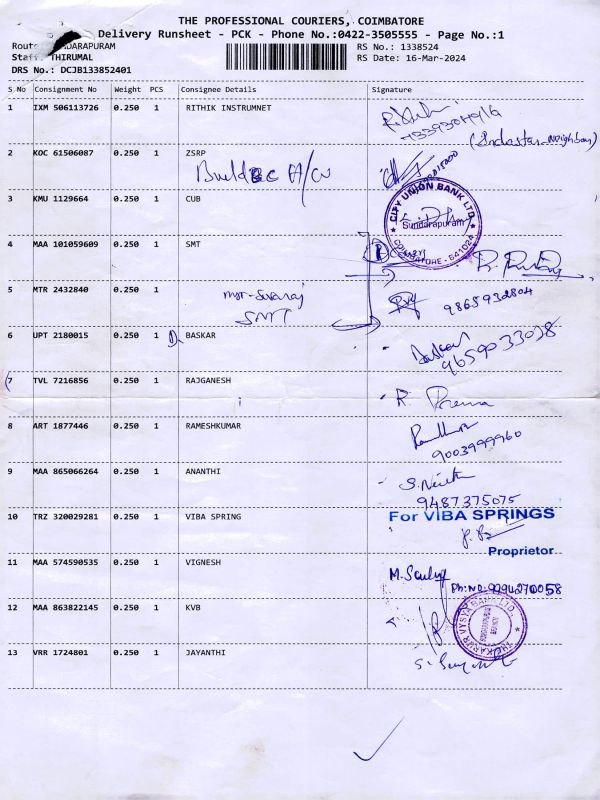 THE PROFESSIONAL COURIERS, COIMBATORE
Delivery Runsheet - PCK - Phone No.:0422-3505555 - Page No.:1
Route DARAPURAM RS No.: 1338524
Staff: THIRUMAL RS Date: 16-Mar-2024
DRS No.: DCJB133852401
S No Consignment No Weight PCS Consignee Details Signature
1 IXM 506113726 0.250 1 RITHIK INSTRUMNET
2 KOC 61506087 0.250 1 ZSRP
3 KMU 1129664 0.250 1 CUB
CITY UNION BANK LTD.
Sundarapuram
COIMBATORE - 641024
4 MAA 101059609 0.250 1 SMT
5 MTR 2432840 0.250 1
SMT
9865932804
6 UPT 2180015 0.250 1 D. BASKAR
Baskar
9659033028
7 TVL 7216856 0.250 1 RAJGANESH
R. Prema
8 ART 1877446 0.250 1 RAMESHKUMAR
9003999960
9 MAA 865066264 0.250 1 ANANTHI
9487375075
10 TRZ 320029281 0.250 1 VIBA SPRING
For VIBA SPRINGS
Proprietor
11 MAA 574590535 0.250 1 VIGNESH
Ph: No: 9994270058
12 MAA 863822145 0.250 1 KVB
THE KARUR VYSYA BANK LTD.
13 VRR 1724801 0.250 1 JAYANTHI